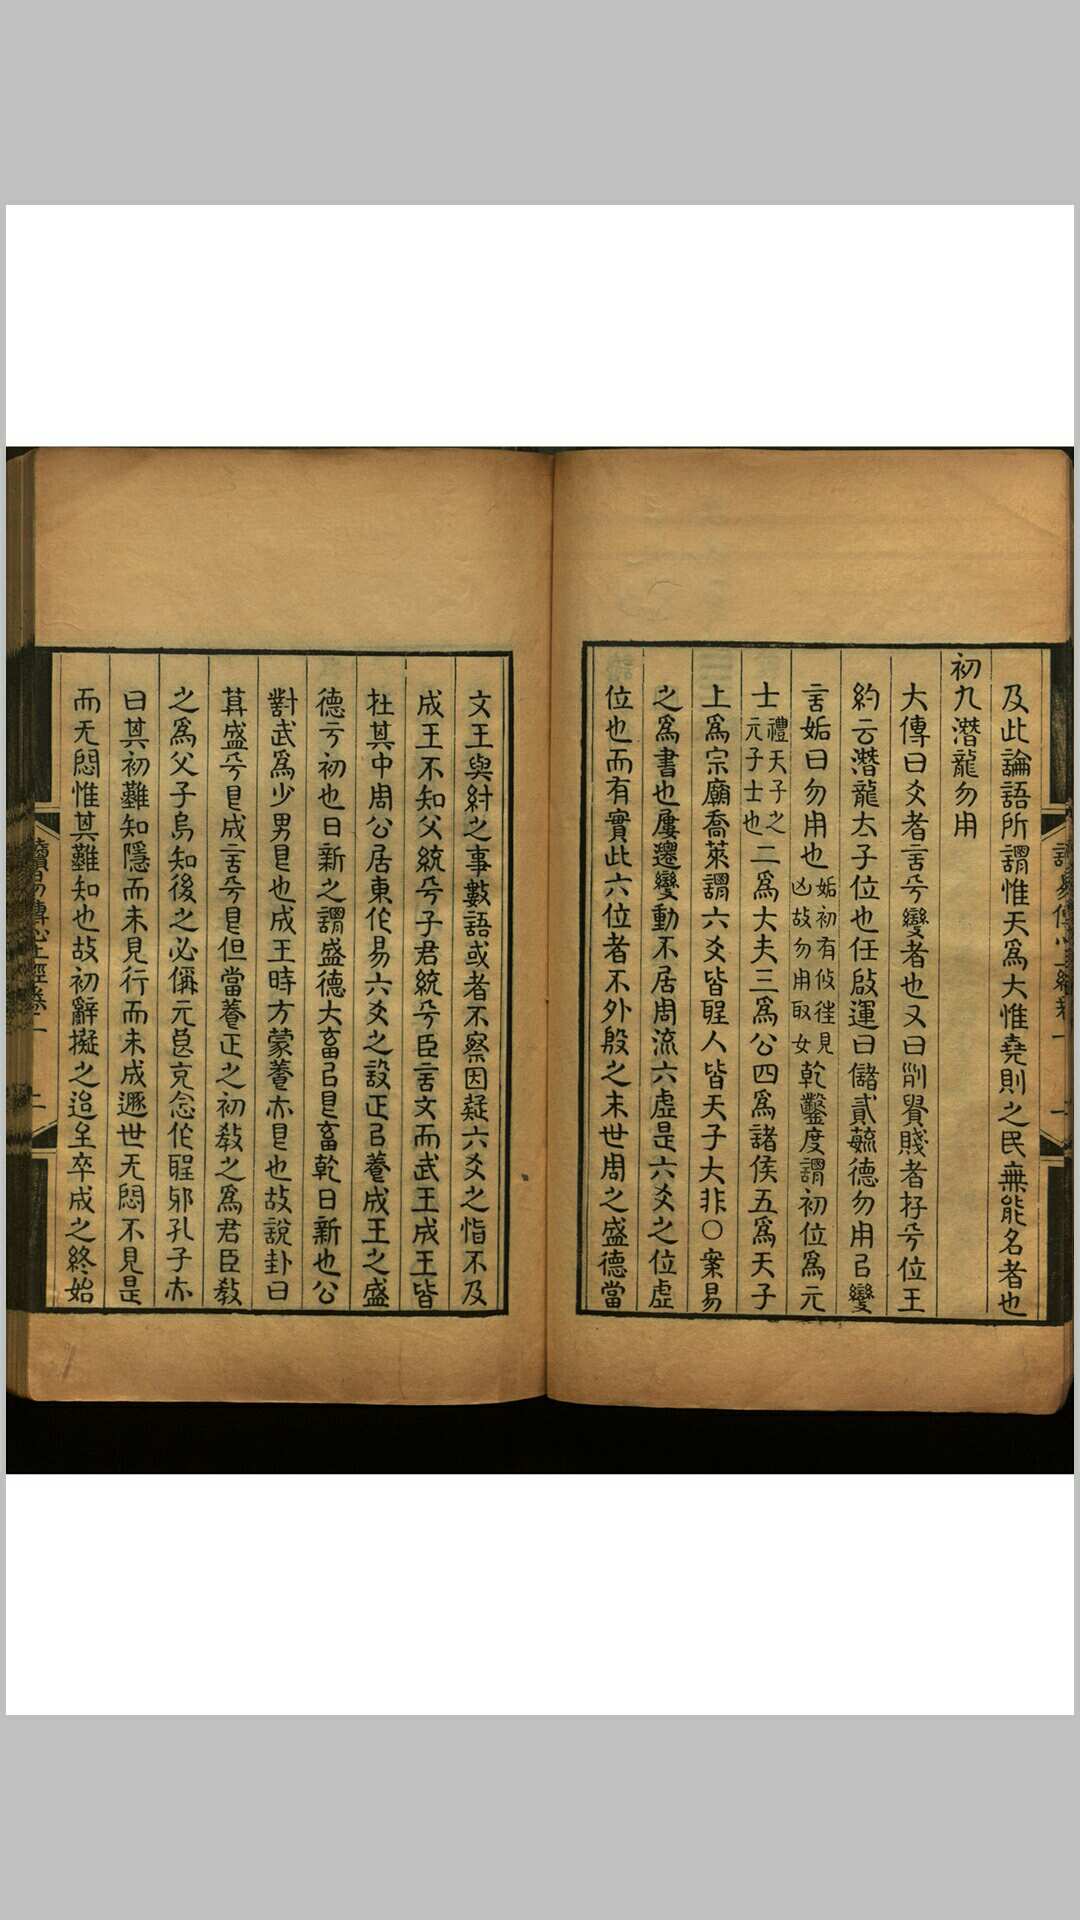 及此論語所謂惟天爲大惟堯則之民無能名者也
初九潛龍勿用
大傳曰爻者言兮變者也又曰削貴賤者存兮位王
約云潛龍太子位也任啟運曰儲貳毓德勿用㠯變
言姤曰勿用也姤初有攸往見凶故勿用取女乾鑿度謂初位爲元
士禮天子之元子士也二爲大夫三爲公四爲諸侯五爲天子
上爲宗廟喬萊謂六爻皆聖人皆天子大非○案易
之爲書也屢遷變動不居周流六虛是六爻之位虛
位也而有實此六位者不外殷之末世周之盛德當
文王與紂之事數語或者不察因疑六爻之恉不及
成王不知父統兮子君統兮臣言文而武王成王皆
在其中周公居東作易六爻之設正㠯養成王之盛
德亏初也日新之謂盛德大畜㠯㫐畜乾日新也公
對武爲少男㫐也成王時方蒙養亦㫐也故說卦曰
莫盛兮㫐成言兮㫐但當養正之初教之爲君臣教
之爲父子烏知後之必偁元㫐克念作聖邪孔子亦
曰其初難知隱而未見行而未成遯世无悶不見是
而无悶惟其難知也故初辭擬之迨至卒成之終始
讀易傳心上經卷一 二